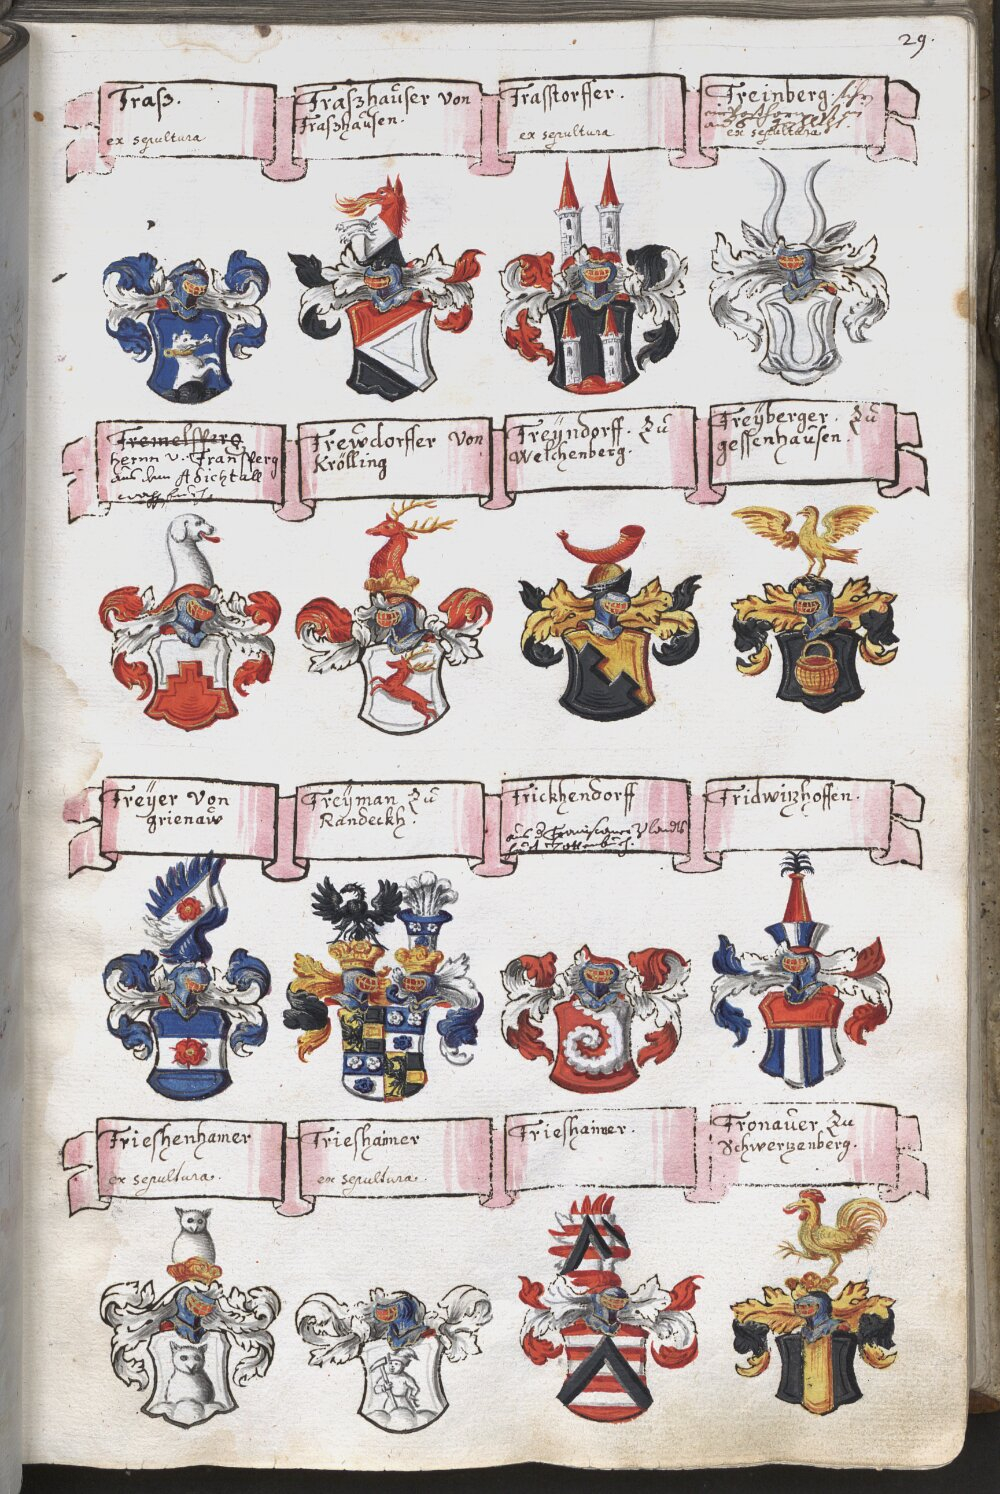 29.
Traſz.
ex sepultura
Traſzhaůser von
Traſzhaůsen.
Trasstorffer.
ex sepultura
Treinberg.
ex sepultura
Tremelsperg
herrn v. Transperg
aus dem
Trewdorffer von
Krölling
Treÿndorff. Zů
Welchenberg.
Treÿberger. Zů
gessenhaůsen.
Treÿer von
grienaẘ
Treÿman Zů
Randeckh.
Trickhendorff
Tridwitzhoffen.
Trieshenhamer
ex sepultura.
Trieshaimer
ex sepultura.
Trieshaimer.
Tronaůer Zů
Schwertzenberg.